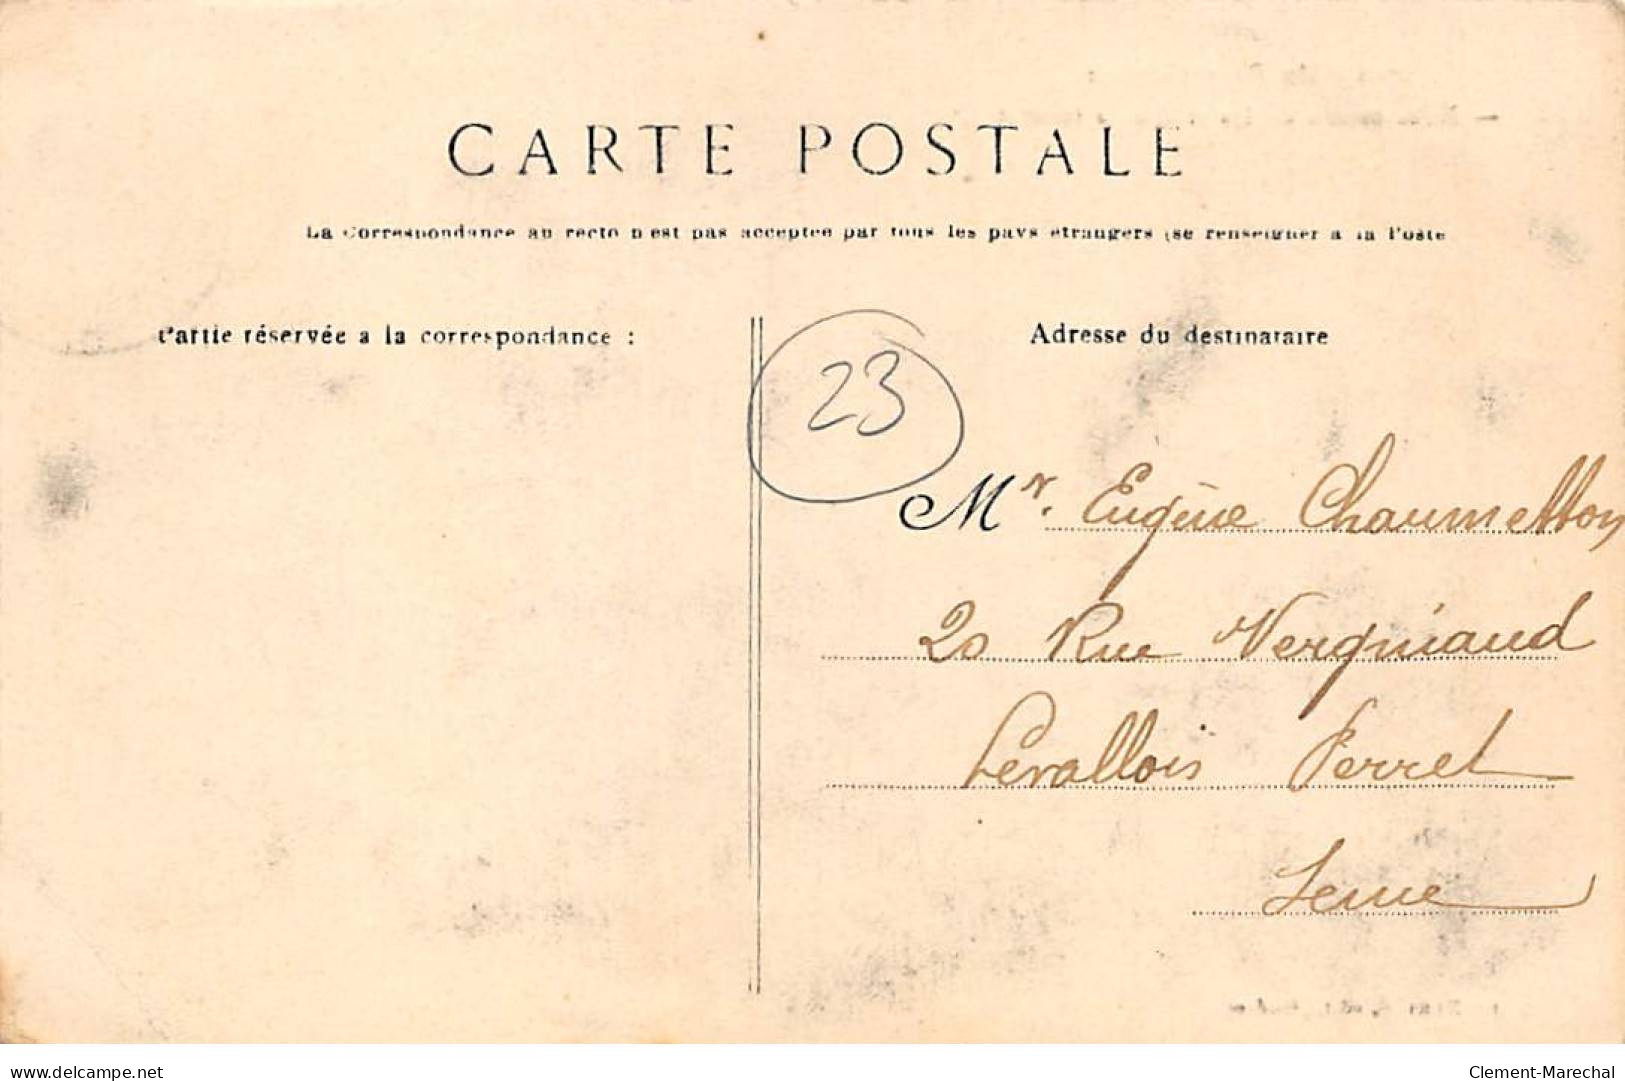 CARTE POSTALE
La Correspondance au recto n'est pas acceptée par tous les pays étrangers (se renseigner à la Poste
Partie réservée à la correspondance :
Adresse du destinataire
23
Mr. Eugène Chaumetton
20 Rue Vergniaud
Levallois Perret
Seine
delcampe.net
Clement-Marechal